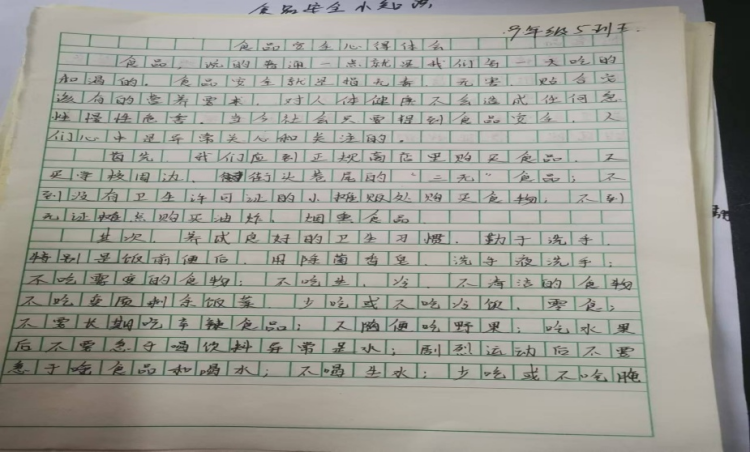 食品安全小知识
9年级5班王
食品安全心得体会
食品，说的普通一点就是我们每一天吃的
和喝的。食品安全就是指无毒、无害，贴合应
该有的营养要求，对人体健康不会造成任何急
性慢性危害。当今社会只要提到食品安全，人
们心中是异常关心和关注的。
首先，我们应到正规商店里购买食品，不
买学校周边、街头巷尾的“三无”食品；不
到没有卫生许可证的小摊贩处购买食物，不到
无证摊点购买油炸、烟熏食品。
其次，养成良好的卫生习惯，勤于洗手，
特别是饭前便后，用除菌香皂、洗手液洗手；
不吃霉变的食物；不吃生、冷、不清洁的食物
不吃变质剩余饭菜，少吃或不吃冷饮、零食；
不要长期吃辛辣食品；不随便吃野果；吃水果
后不要急于喝饮料异常是水；剧烈运动后不要
急于吃食品和喝水；不喝生水；少吃或不吃腌